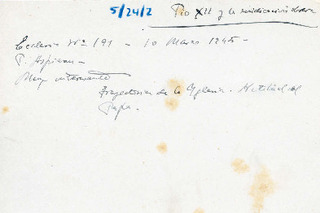 5/24/2
Pio XII y la
Ecclesia Nº 191 - 10 Marzo 1945 -
P.
Muy interesante
Trayectoria de la Iglesia. Actitud del
Papa.